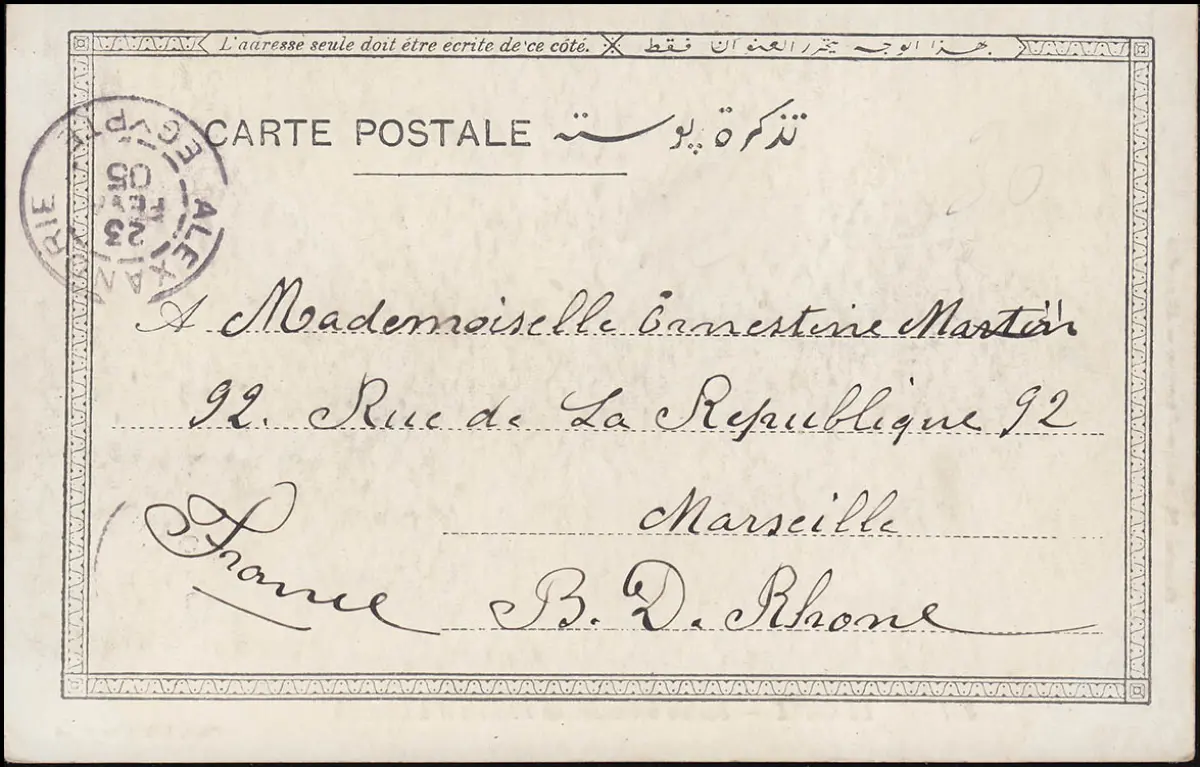 L'adresse seule doit être écrite de ce côté. بهذا الوجه يحرر العنوان فقط
CARTE POSTALE تذكرة پوسته
ALEXANDRIE EGYPTE
23
05
A Mademoiselle Ernestine Martin
92. Rue de La Republique 92
Marseille
France
B. D. Rhone